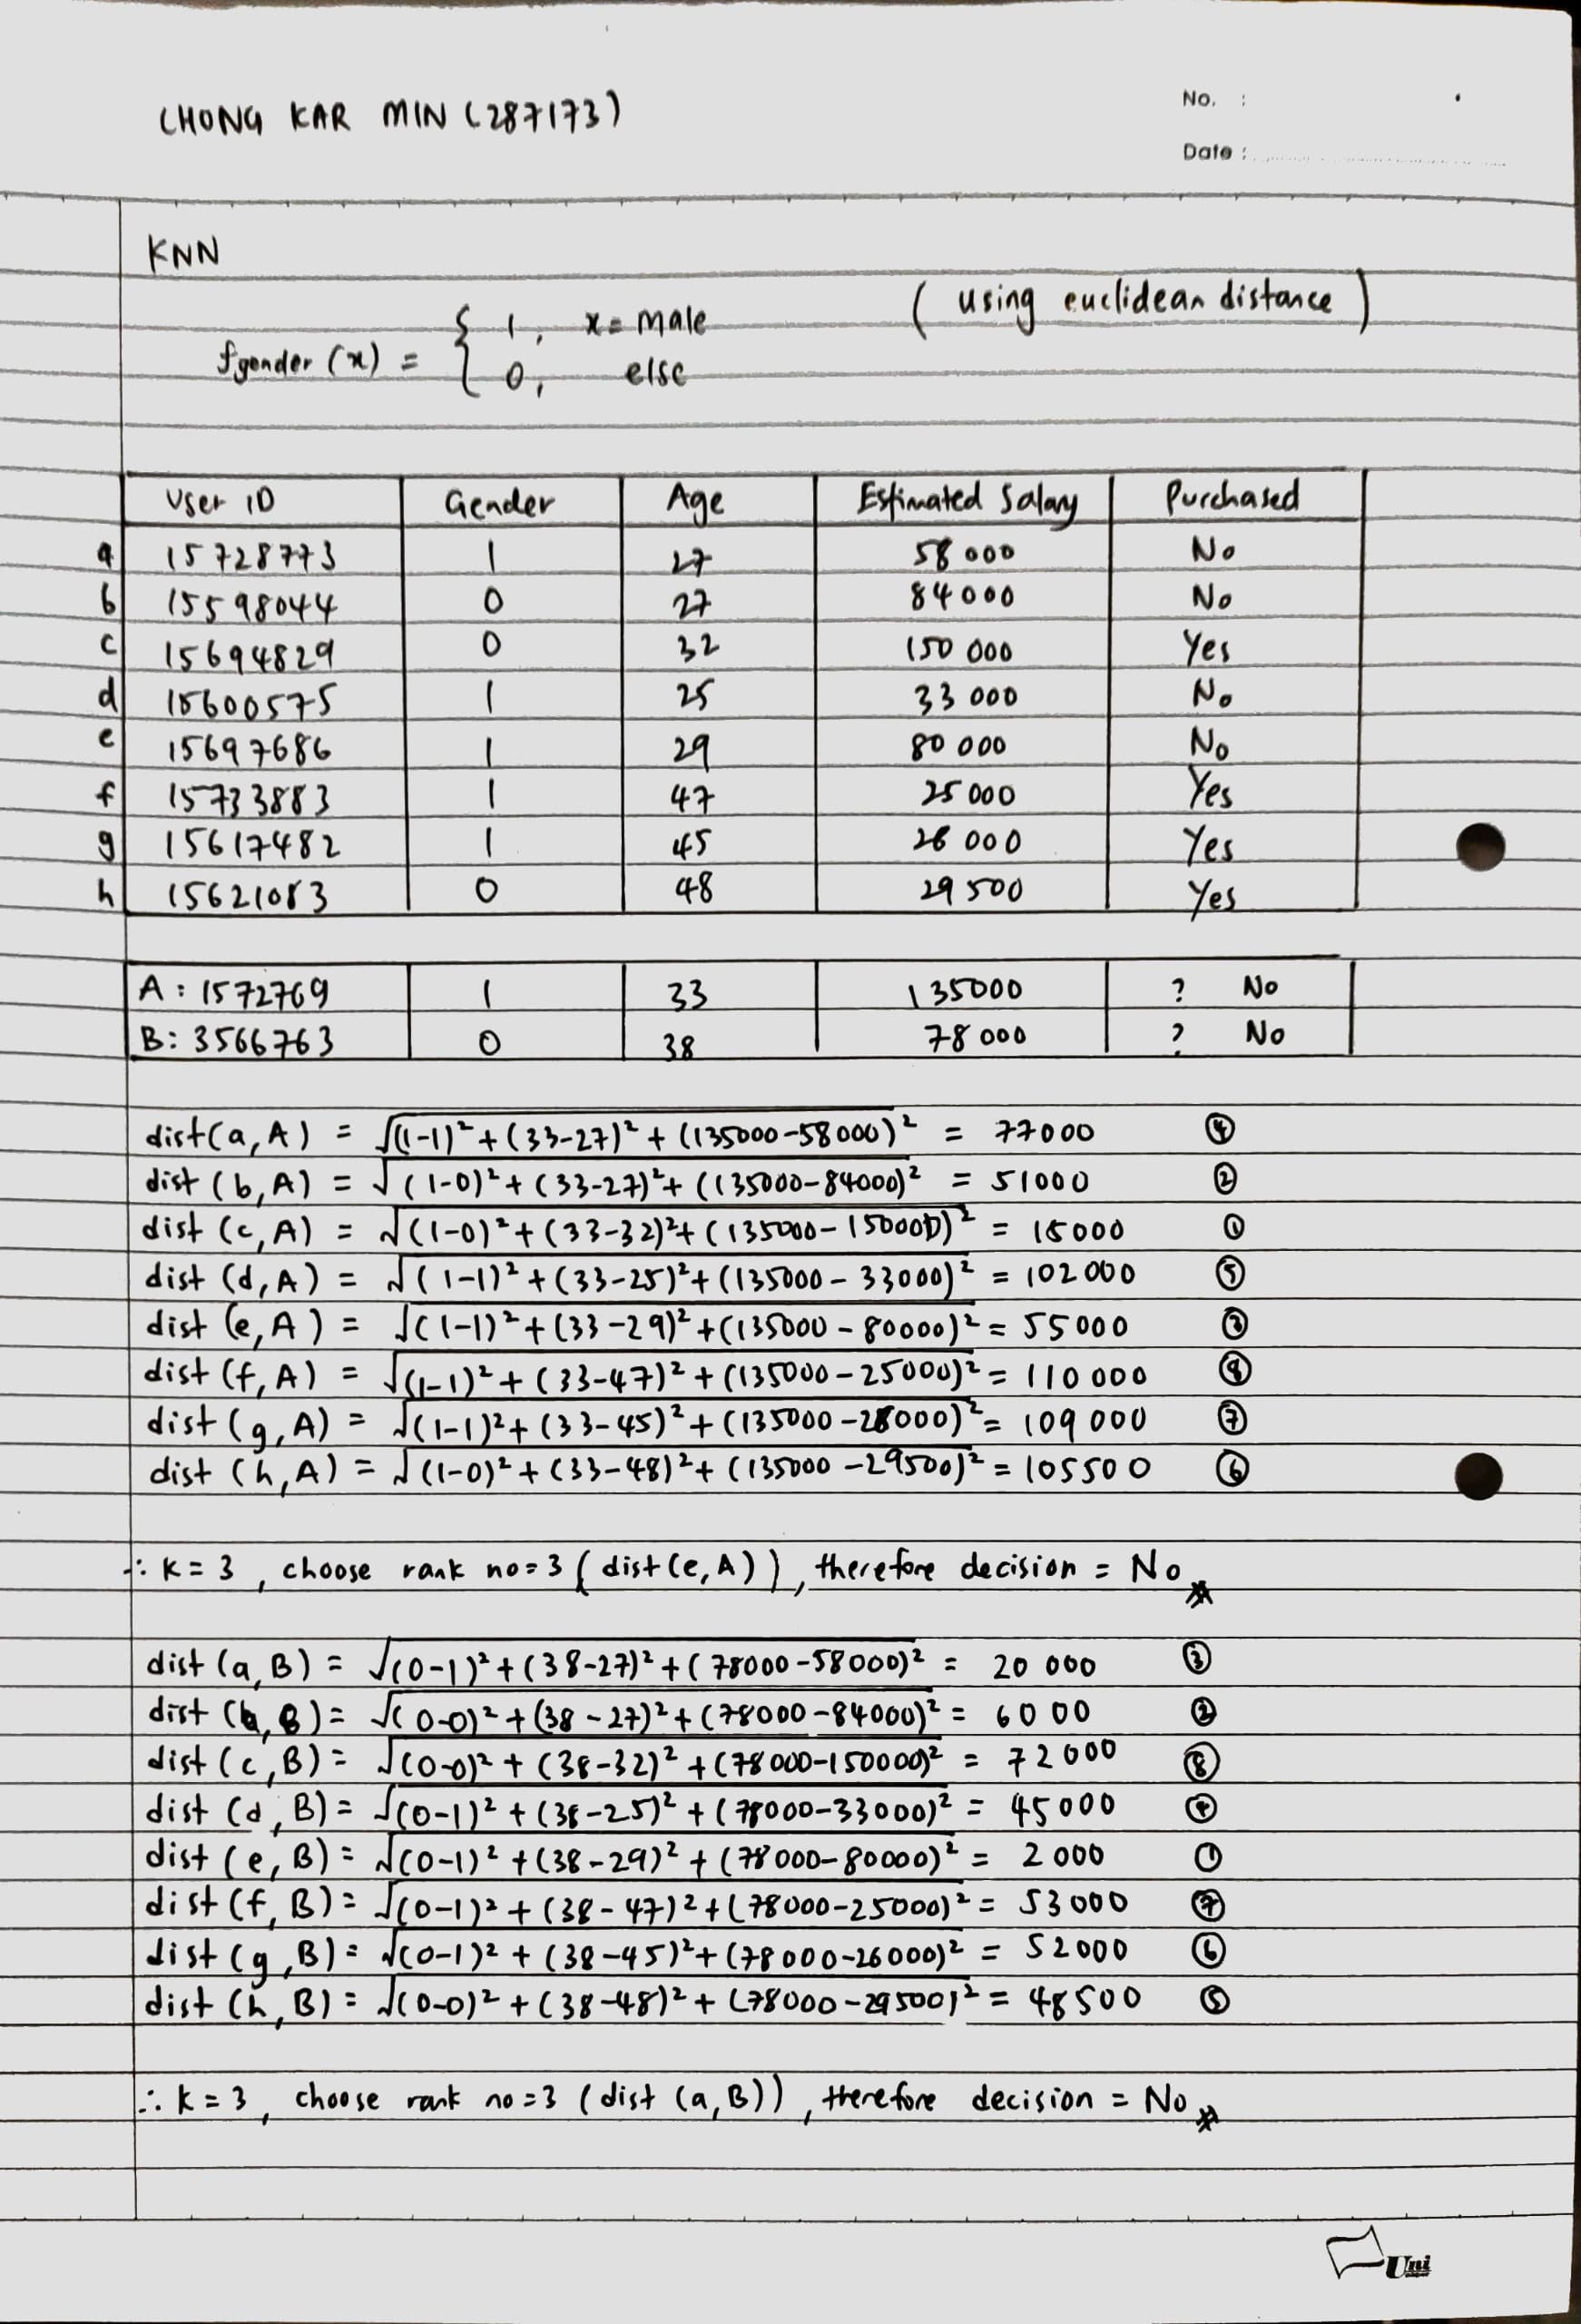 CHONG KAR MIN (287173)
No. :
Date :
KNN
(using euclidean distance)
fgender (x) = { 1, x = male
0, else
User ID Gender Age Estimated Salary Purchased
a 15728773 1 27 58 000 No
b 15598044 0 27 84000 No
c 15694829 0 32 150 000 Yes
d 15600575 1 25 33 000 No
e 15697686 1 29 80 000 No
f 15733883 1 47 25 000 Yes
g 15617482 1 45 26 000 Yes
h 15621083 0 48 29 500 Yes
A : 1572769 1 33 135000 ? No
B : 3566763 0 38 78 000 ? No
dist(a, A) = √(1-1)² + (33-27)² + (135000-58000)² = 77000 ④
dist (b, A) = √(1-0)² + (33-27)² + (135000-84000)² = 51000 ②
dist (c, A) = √(1-0)² + (33-32)² + (135000-150000)² = 15000 ①
dist (d, A) = √(1-1)² + (33-25)² + (135000-33000)² = 102 000 ⑤
dist (e, A) = √(1-1)² + (33-29)² + (135000-80000)² = 55000 ③
dist (f, A) = √(1-1)² + (33-47)² + (135000-25000)² = 110 000 ⑧
dist (g, A) = √(1-1)² + (33-45)² + (135000-26000)² = 109 000 ⑦
dist (h, A) = √(1-0)² + (33-48)² + (135000-29500)² = 105500 ⑥
∴ k = 3, choose rank no = 3 (dist (e, A)), therefore decision = No
dist (a, B) = √(0-1)² + (38-27)² + (78000-58000)² = 20 000 ③
dist (b, B) = √(0-0)² + (38-27)² + (78000-84000)² = 6000 ②
dist (c, B) = √(0-0)² + (38-32)² + (78000-150000)² = 72000 ⑧
dist (d, B) = √(0-1)² + (38-25)² + (78000-33000)² = 45000 ④
dist (e, B) = √(0-1)² + (38-29)² + (78000-80000)² = 2000 ①
dist (f, B) = √(0-1)² + (38-47)² + (78000-25000)² = 53000 ⑦
dist (g, B) = √(0-1)² + (38-45)² + (78000-26000)² = 52000 ⑥
dist (h, B) = √(0-0)² + (38-48)² + (78000-29500)² = 48500 ⑤
∴ k = 3, choose rank no = 3 (dist (a, B)), therefore decision = No
Uni